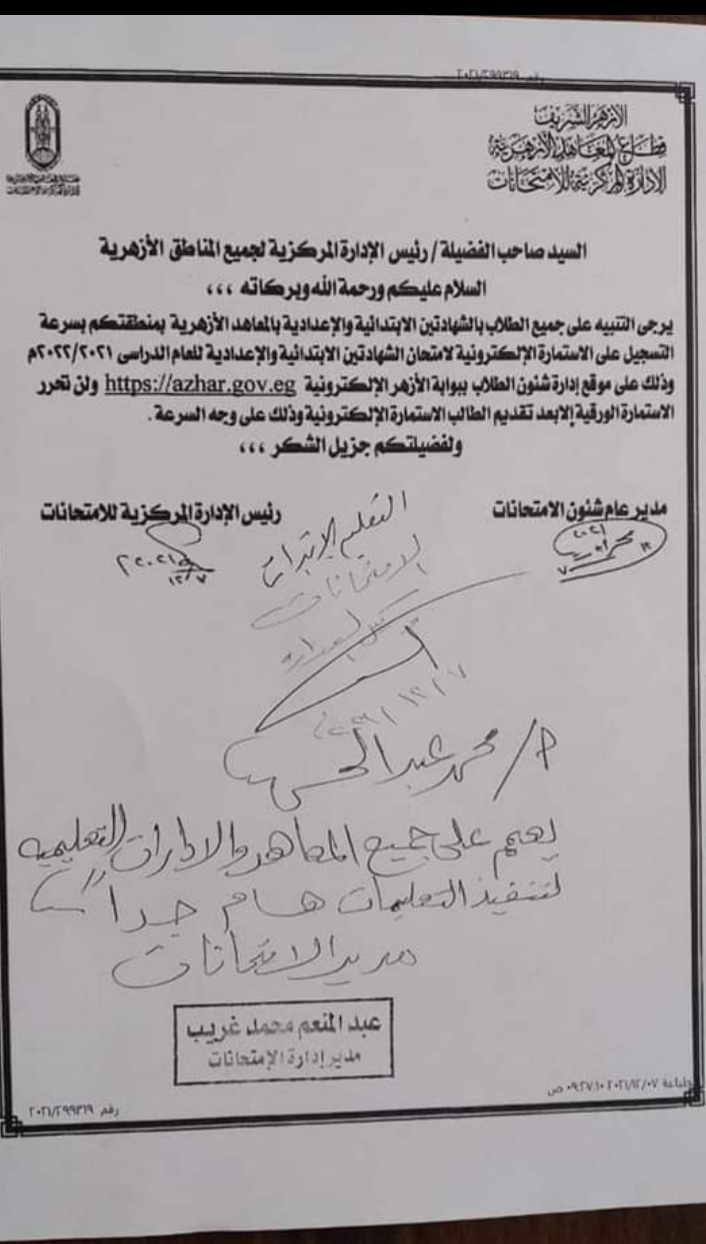 رقم ٢٠٢١/٢٩٩٣١٩
الأزهر الشريف
قطاع المعاهد الأزهرية
الإدارة المركزية للامتحانات
السيد صاحب الفضيلة / رئيس الإدارة المركزية لجميع المناطق الأزهرية
السلام عليكم ورحمة الله وبركاته ،،،
يرجى التنبيه على جميع الطلاب بالشهادتين الابتدائية والإعدادية بالمعاهد الأزهرية بمنطقتكم بسرعة
التسجيل على الاستمارة الإلكترونية لامتحان الشهادتين الابتدائية والإعدادية للعام الدراسى ٢٠٢٢/٢٠٢١م
وذلك على موقع إدارة شئون الطلاب ببوابة الأزهر الإلكترونية https://azhar.gov.eg ولن تحرر
الاستمارة الورقية إلا بعد تقديم الطالب الاستمارة الإلكترونية وذلك على وجه السرعة .
ولفضيلتكم جزيل الشكر ،،،
مدير عام شئون الامتحانات
رئيس الإدارة المركزية للامتحانات
التعليم الابتدائي
الامتحانات
٢٠٢١/١٢/٧
أ/ محمد عبد الحسيب
يعمم على جميع المعاهد والإدارات التعليمية
لتنفيذ التعليمات هام جداً
مدير الامتحانات
عبد المنعم محمد غريب
مدير إدارة الإمتحانات
طباعة ٢٠٢١/١٢/٠٧ ٠٩:٢٧:١٠ ص
رقم ٢٠٢١/٢٩٩٣١٩